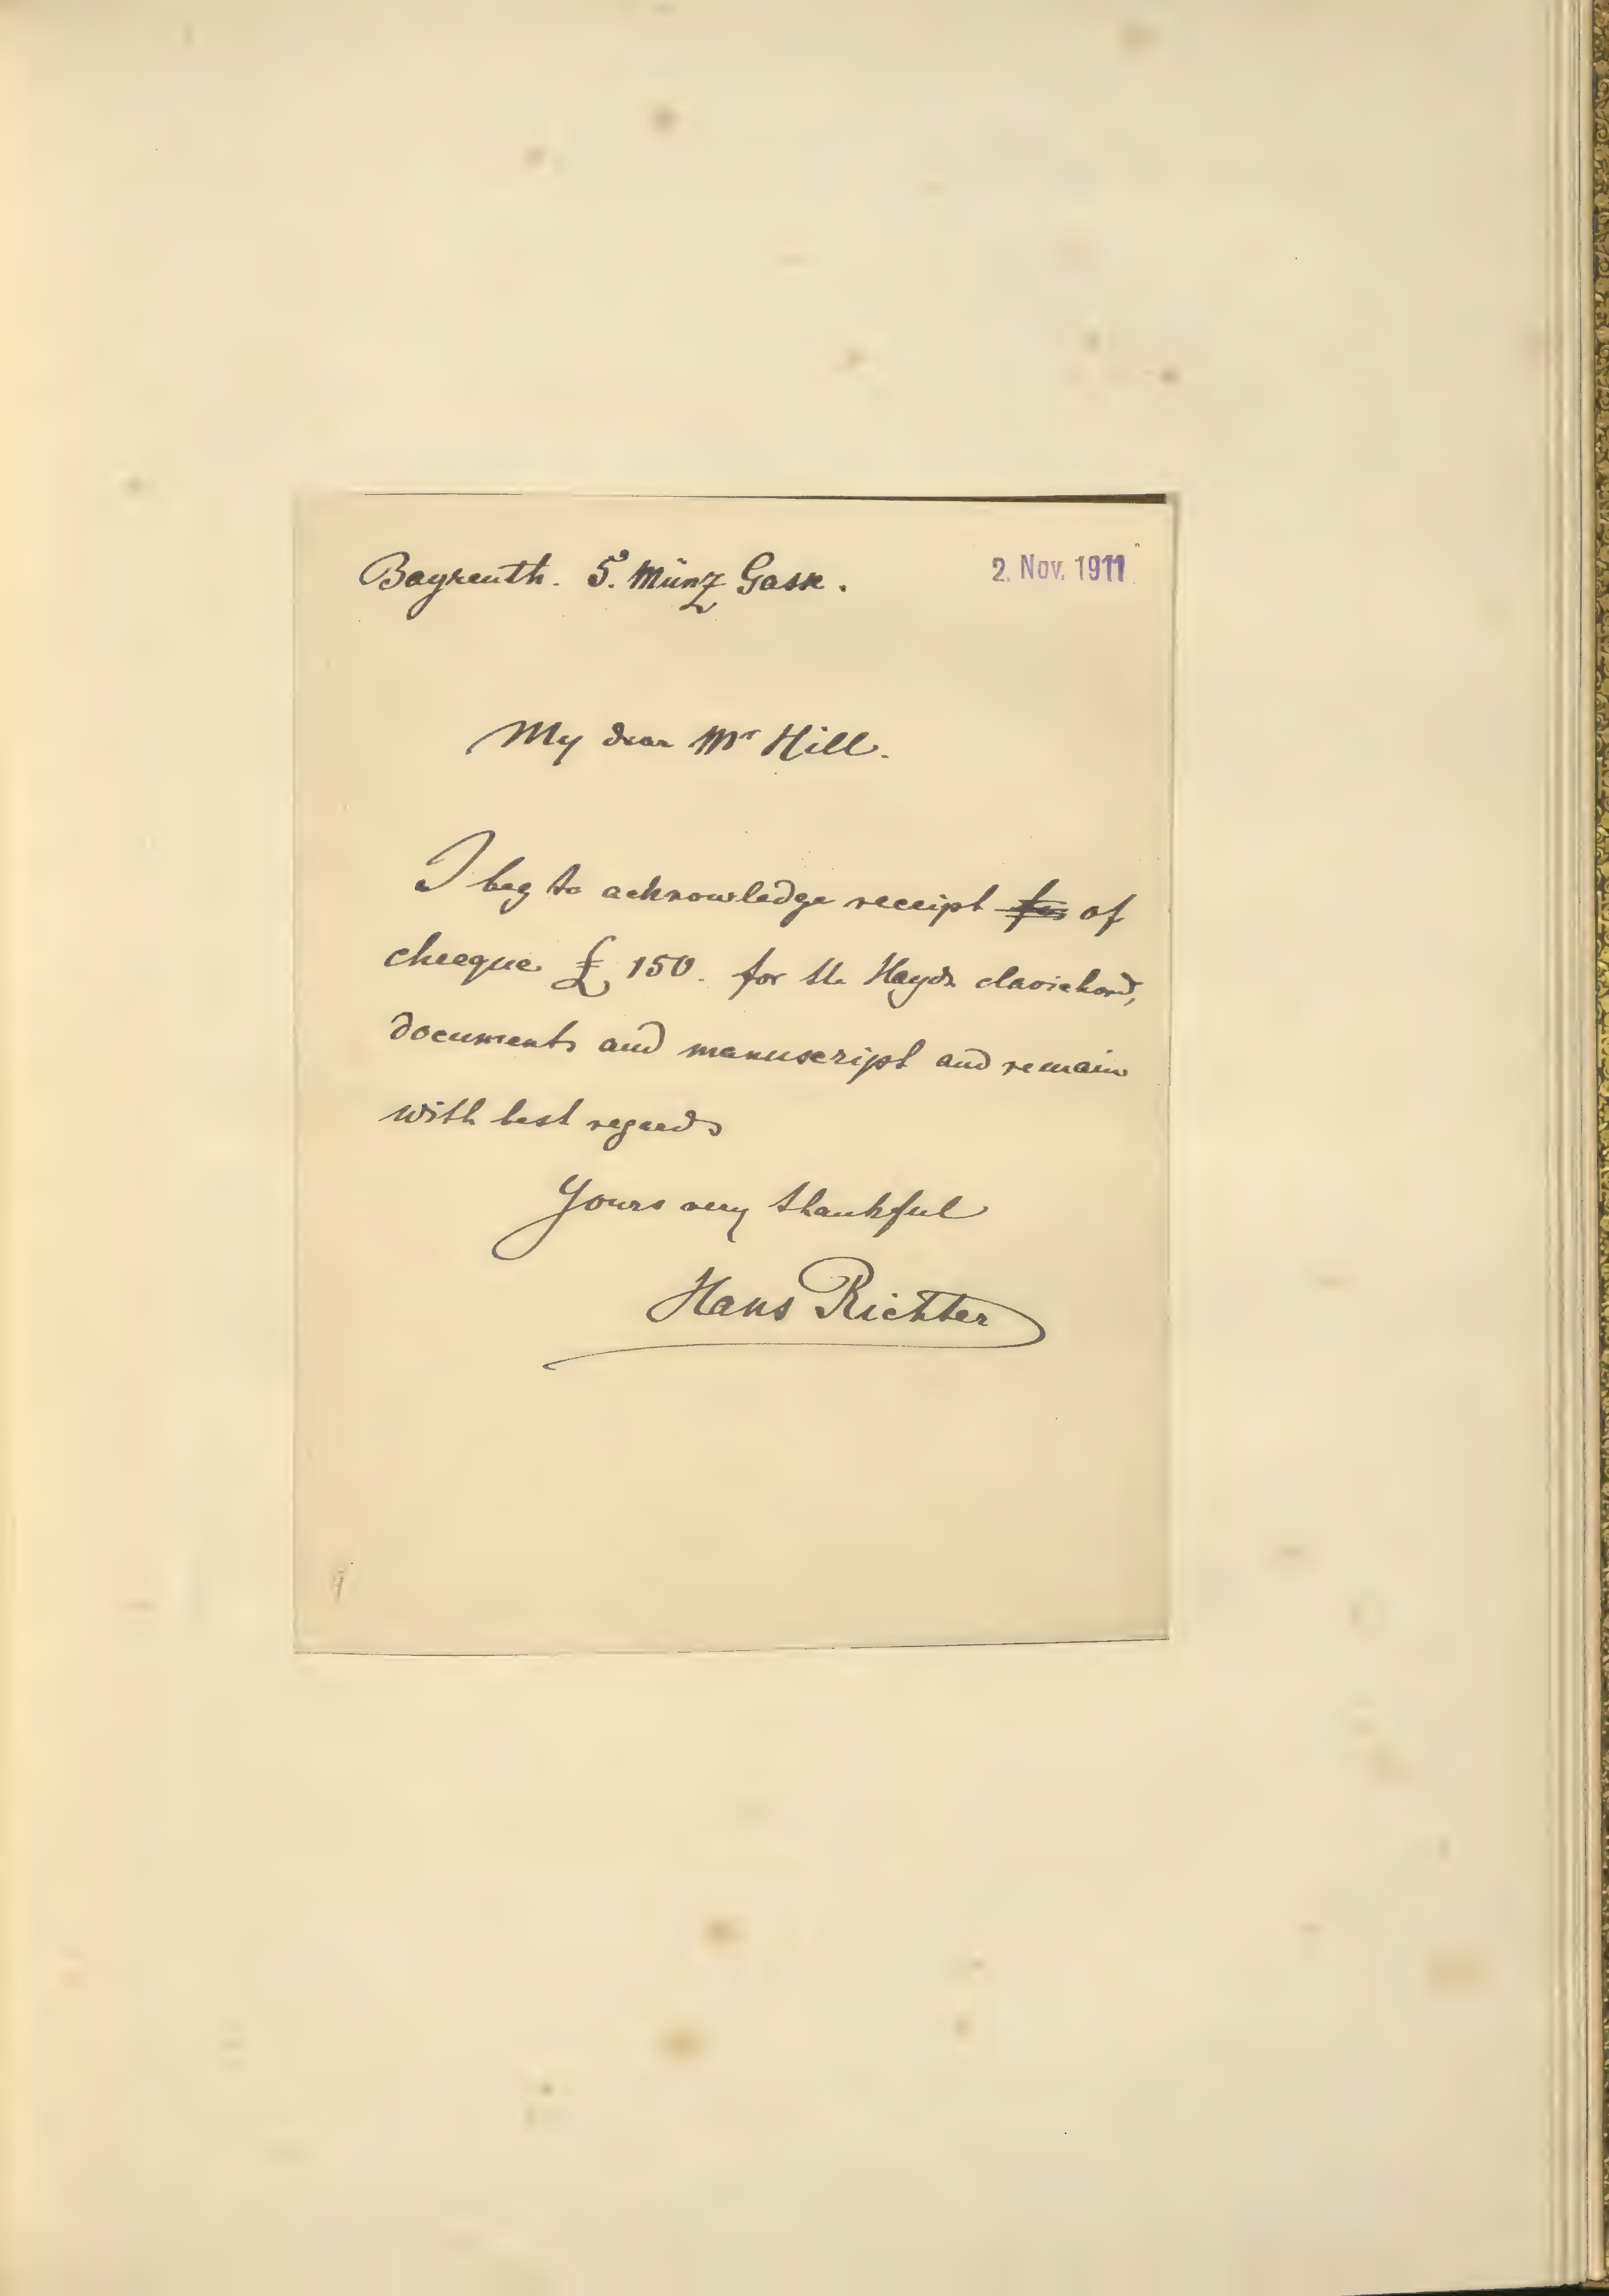 Bayreuth. 5. Münz Gasse.
2. Nov. 1911
My dear Mr Hill.
I beg to acknowledge receipt for of
checque £ 150. for the Haydn clavichord,
documents and manuscript and remain
with best regards
Yours very thankful
Hans Richter